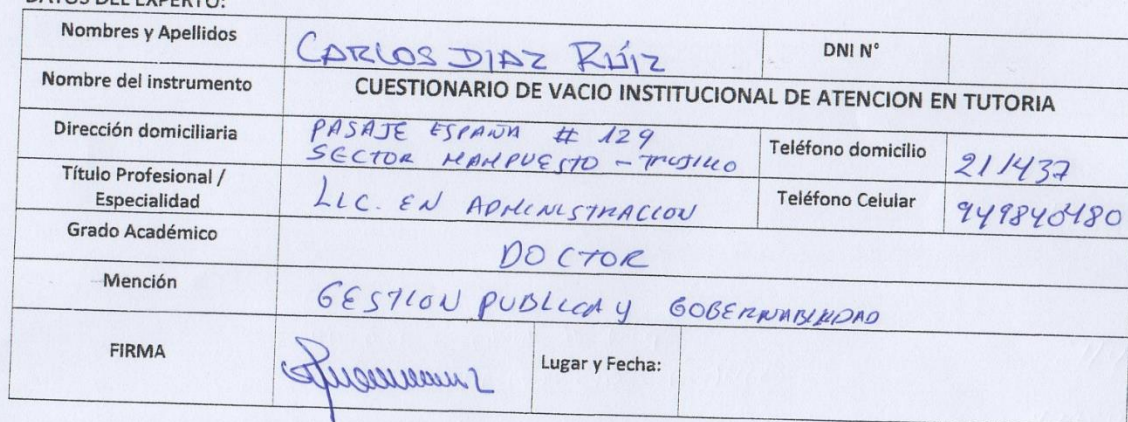 DATOS DEL EXPERTO:
Nombres y Apellidos CARLOS DIAZ RÚIZ DNI N°
Nombre del instrumento CUESTIONARIO DE VACIO INSTITUCIONAL DE ATENCION EN TUTORIA
Dirección domiciliaria PASAJE ESPAÑA # 129
SECTOR MAMPUESTO - TRUJILLO Teléfono domicilio 211437
Título Profesional /
Especialidad LIC. EN ADMINISTRACION Teléfono Celular 949840480
Grado Académico DOCTOR
Mención GESTION PUBLICA y GOBERNABILIDAD
FIRMA Lugar y Fecha: